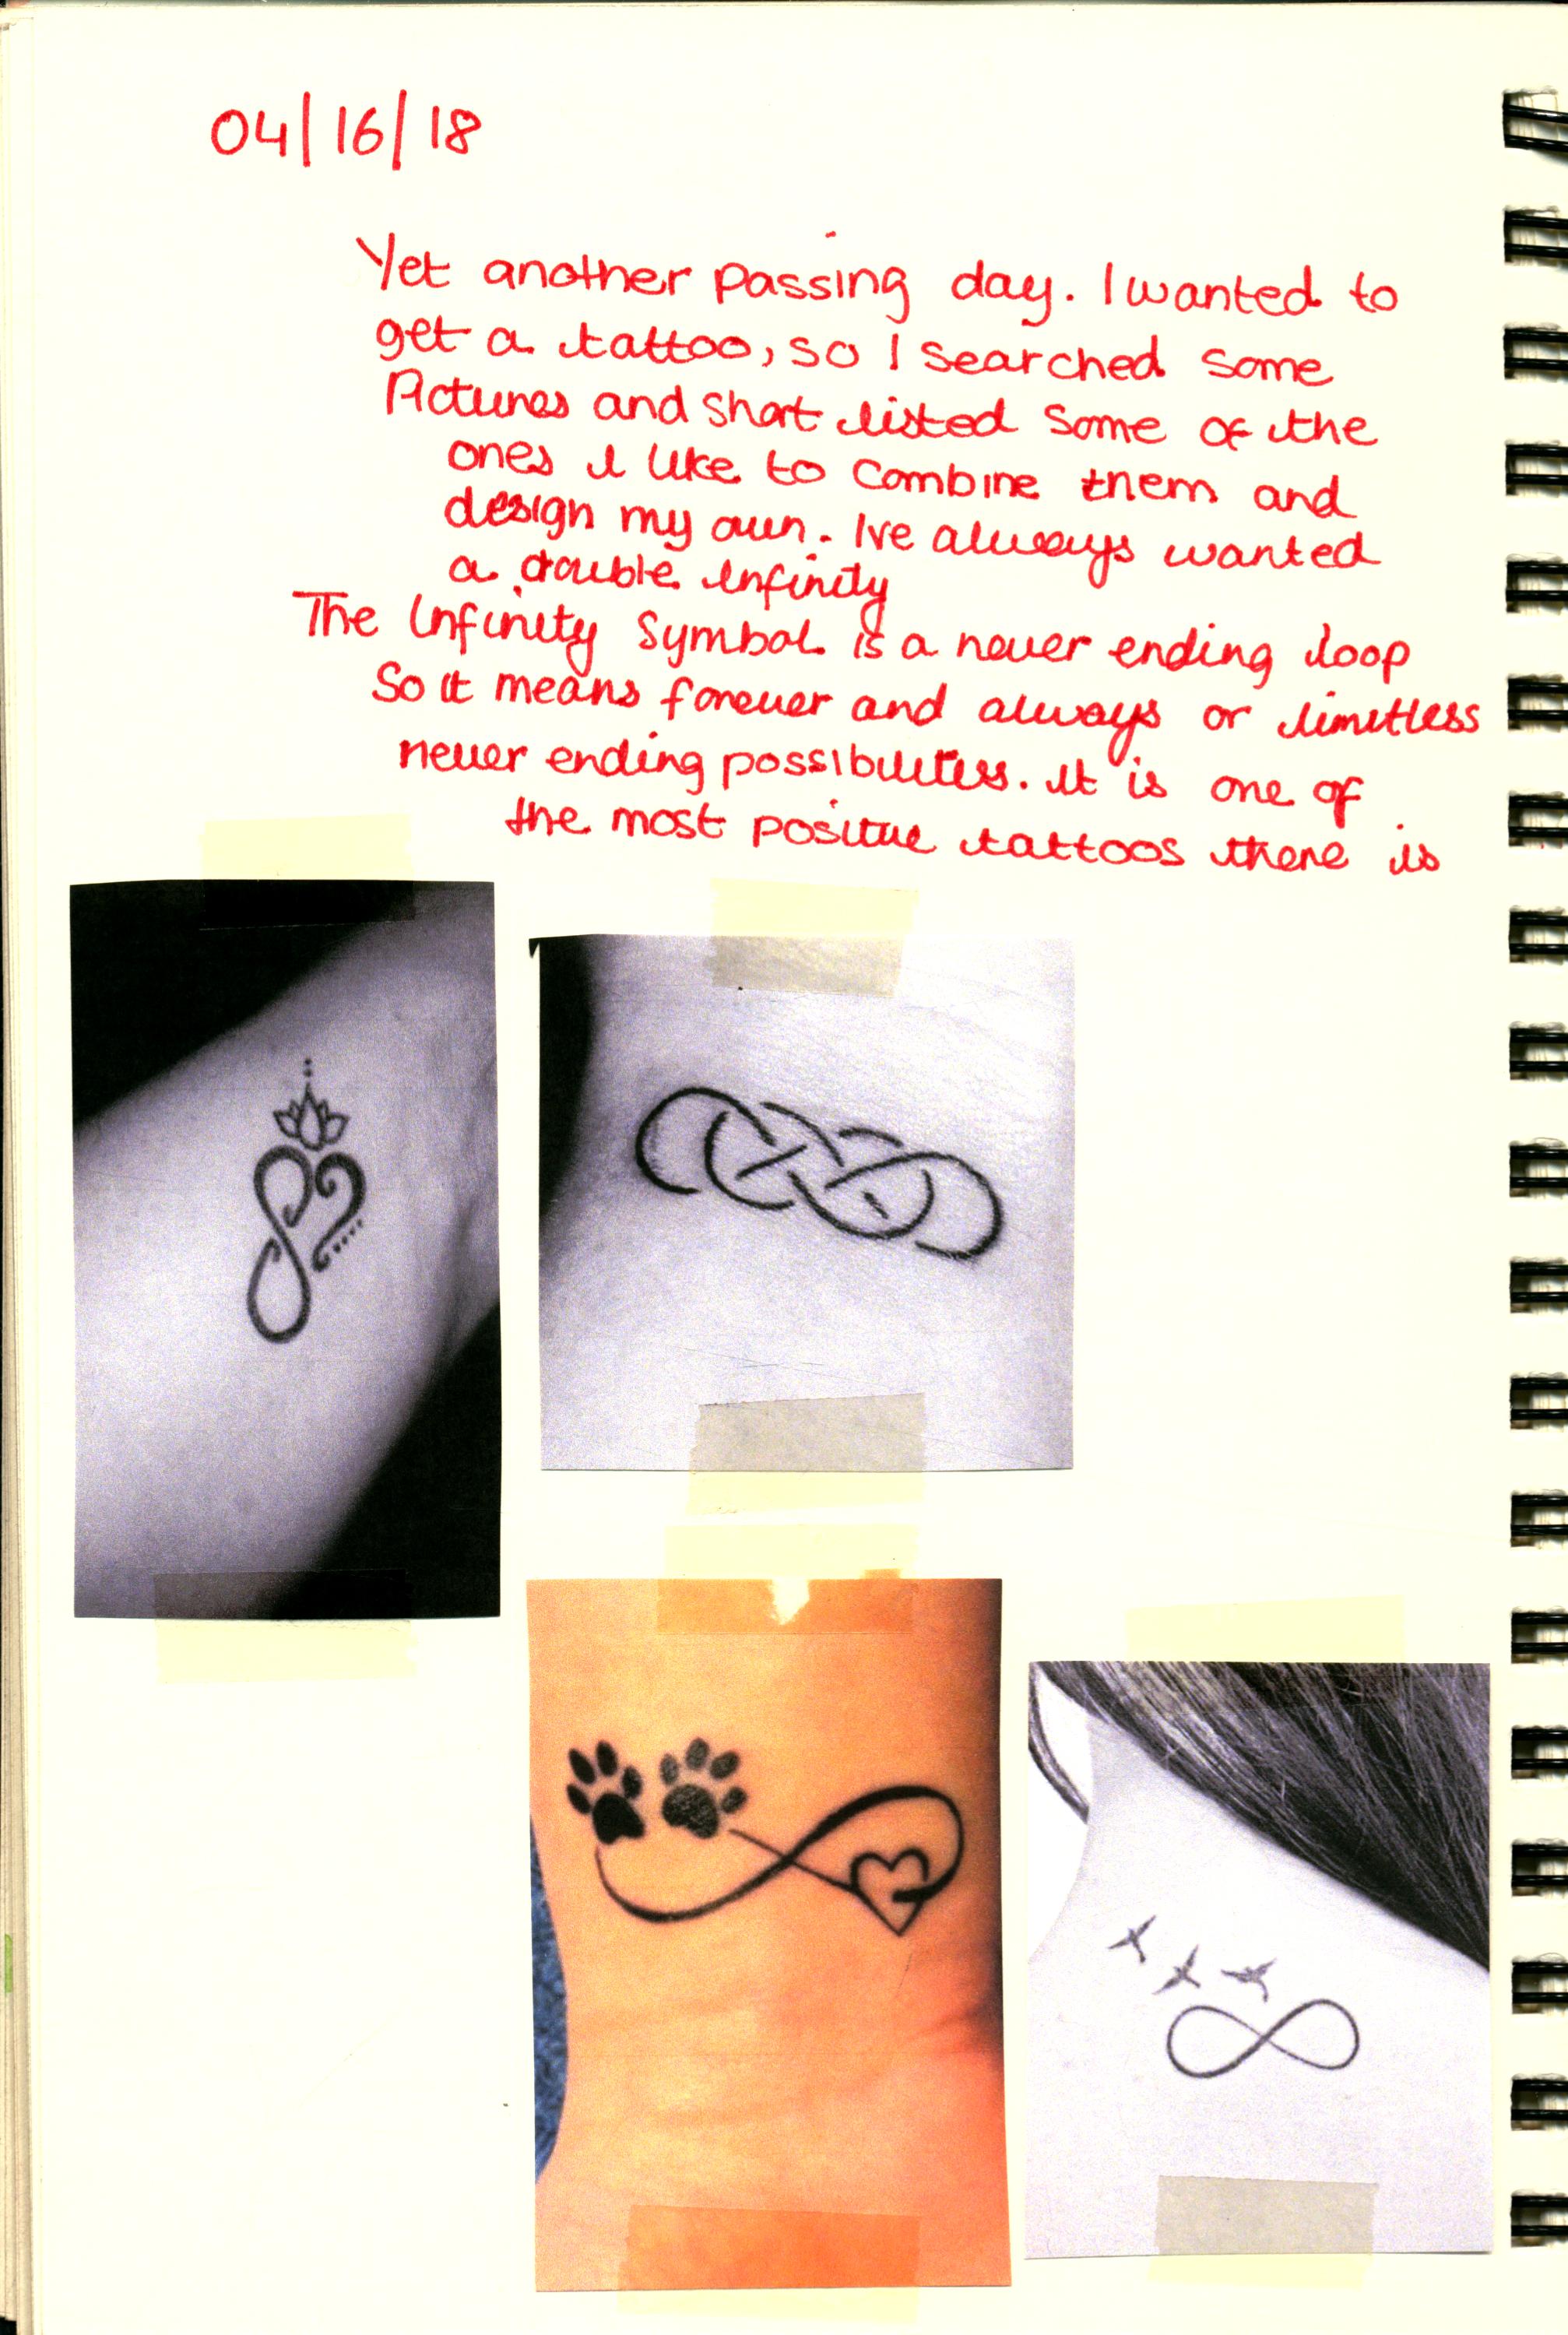 04/16/18
Yet another passing day. I wanted to
get a tattoo, so I searched some
Pictures and short listed some of the
ones I like to combine them and
design my own. Ive always wanted
a double infinity
The Infinity Symbol is a never ending loop
So it means forever and always or limitless
never ending possibilities. It is one of
the most positive tattoos there is